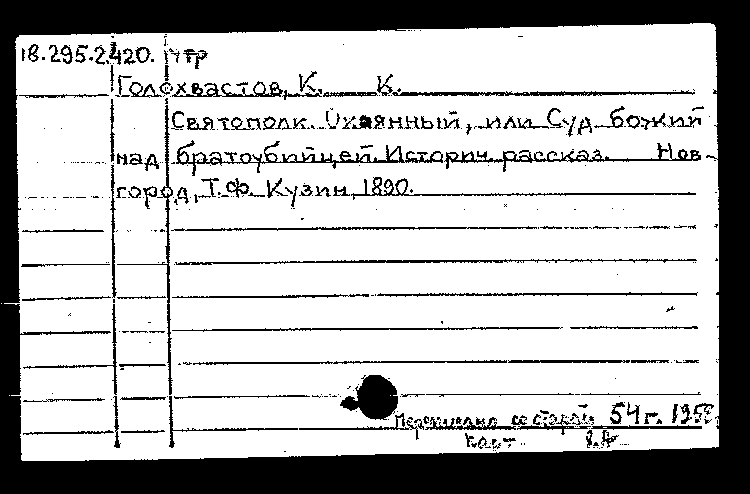 18.295.2.420. утр
Голохвастов, К. К.
Святополк Окаянный, или Суд божий
над братоубийцей. Историч. рассказ. Нов-
город, Т.Ф. Кузин, 1890.
со старой 54 г.
карт.